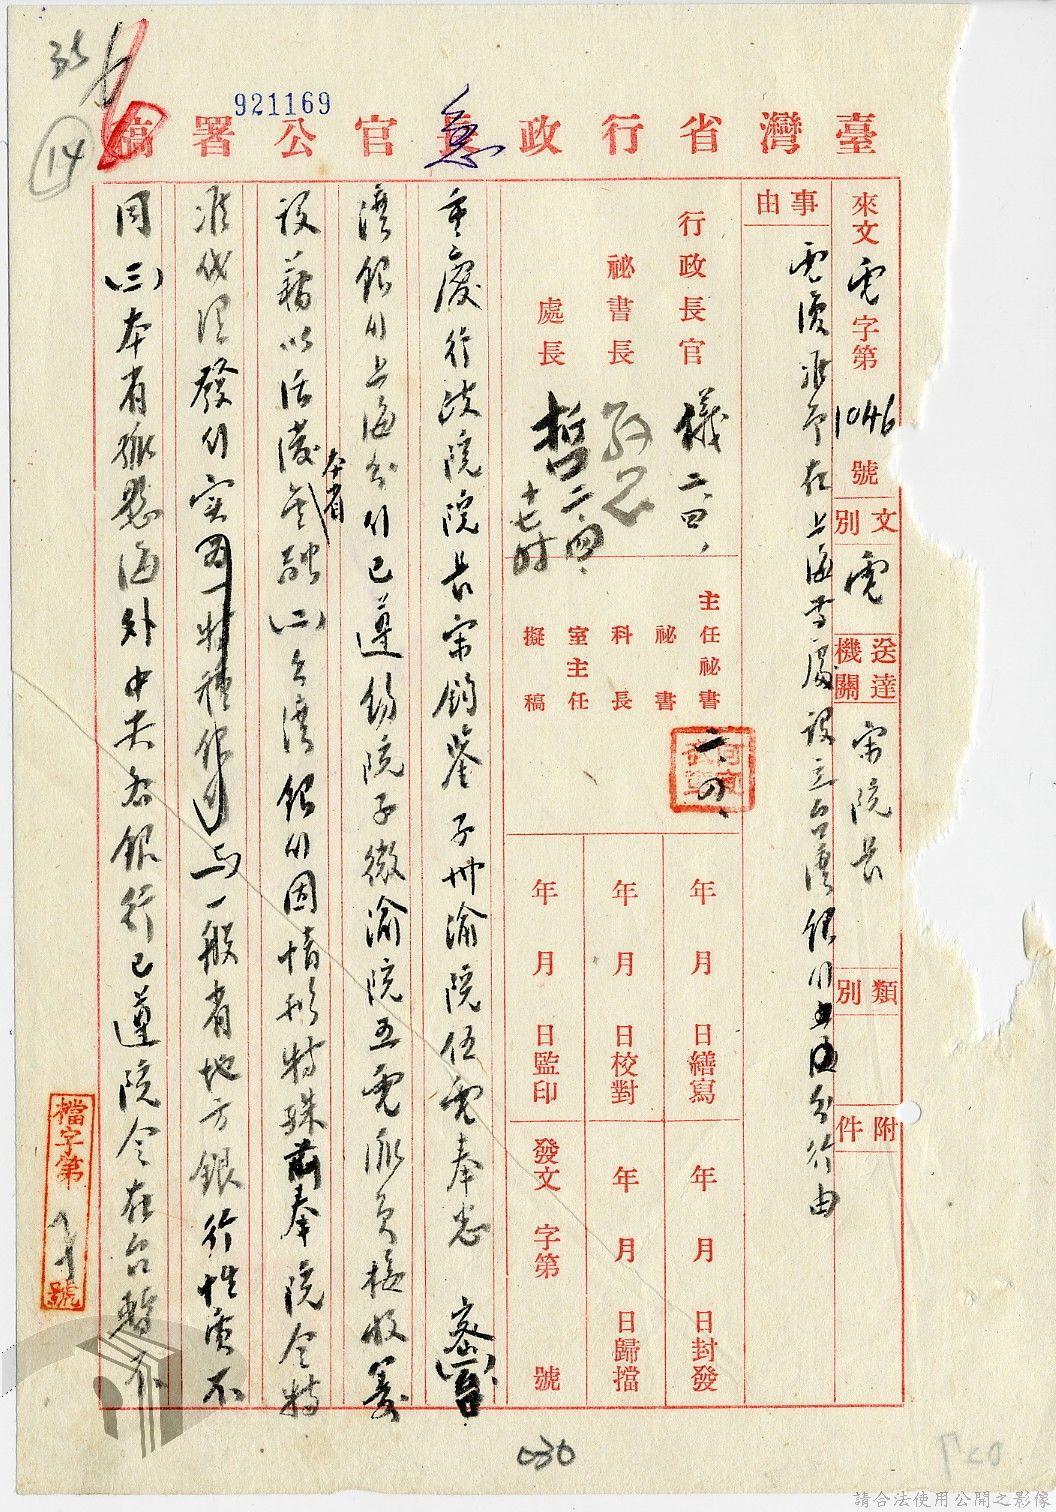 35
14
921169
臺灣省行政長官公署稿
急
來文電字第1046號
文別 電
送達機關 宋院長
類別
附件
事由
電復准予在上海等處設立台灣銀行分行由
行政長官 儀 二、四、
秘書長
處長 哲 二、四、十七时
主任秘書 二、四、
秘書
科長
室主任
擬稿
年月日繕寫
年月日校對
年月日監印
年月日封發
年月日歸擋
發文 字第 號
重慶行政院院長宋鈞鑒子卅渝院伍電奉悉 密(一)台
灣銀行上海分行已遵鈞院子微渝院五電派員接收籌
設藉以活潑本省金融(二)台灣銀行因情形特殊前奉院令特
准代理發行实為一特種銀行与一般省地方銀行性質不
同(三)本省孤懸海外中央各銀行已遵院令在台暫不
檔字第 號
030
請合法使用公開之影像